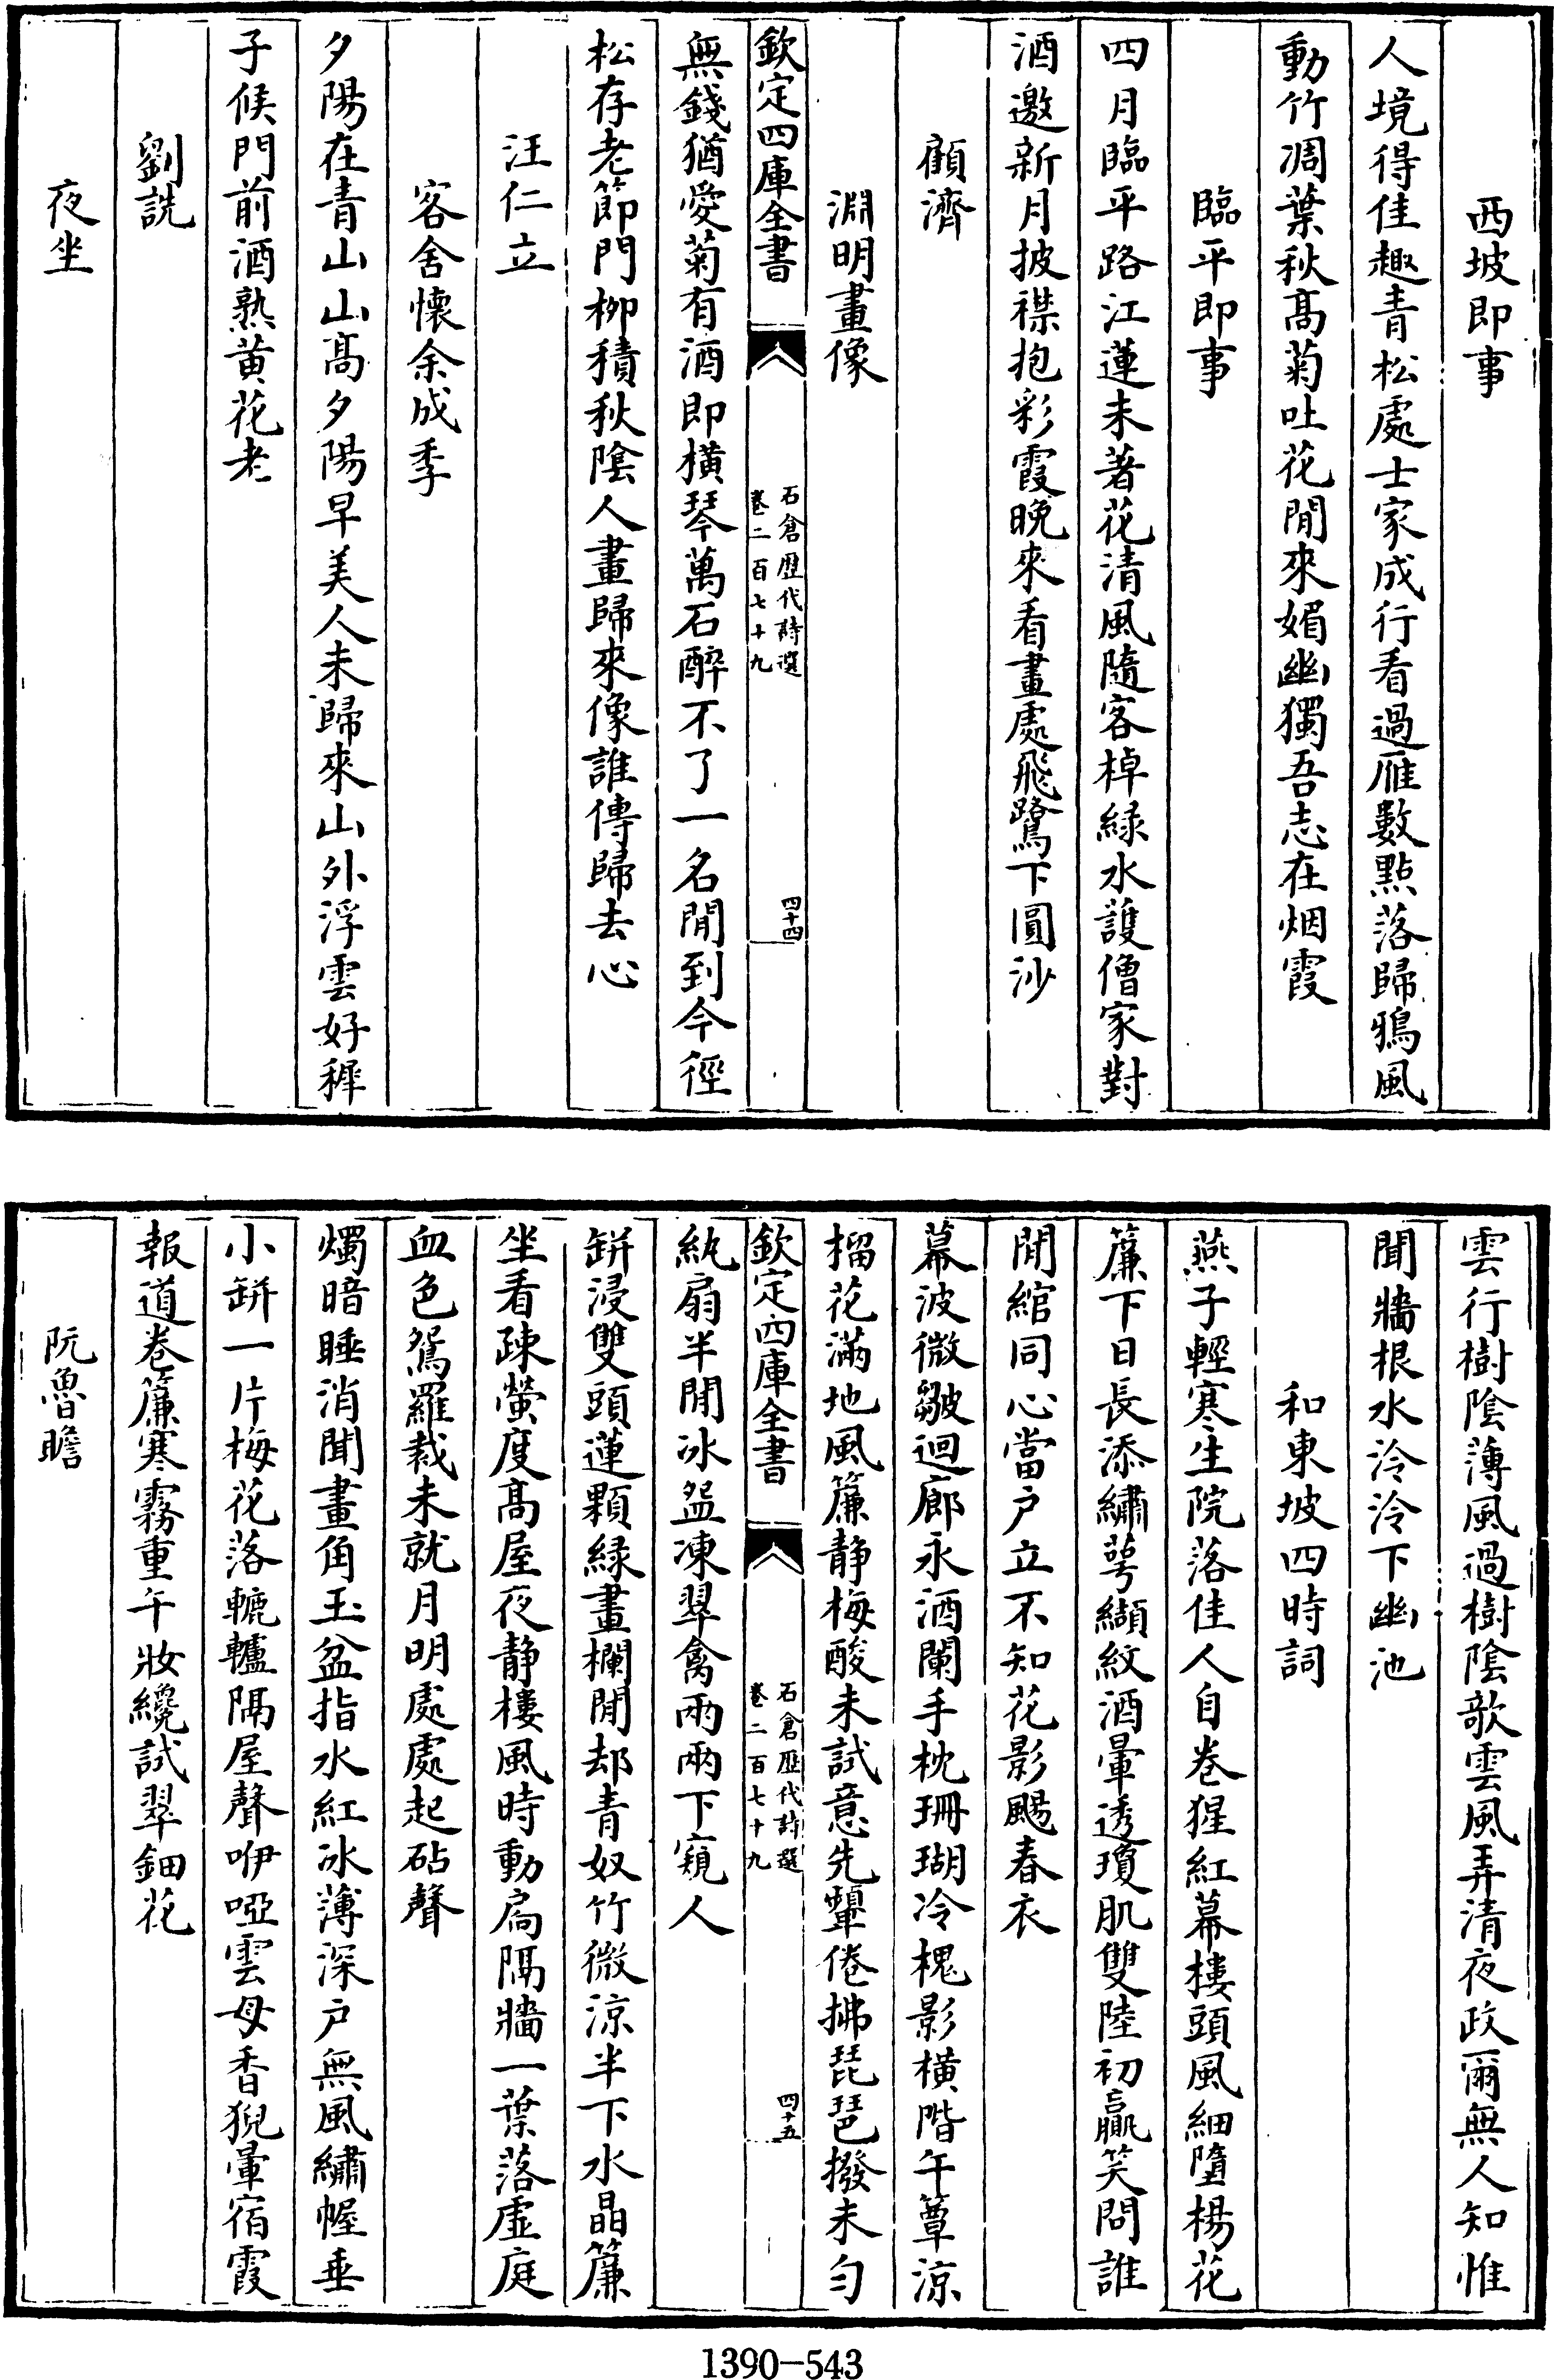 西坡即事
人境得佳趣青松處士家成行看過雁數點落歸鴉風
動竹凋葉秋高菊吐花閒來媚幽獨吾志在烟霞
臨平即事
四月臨平路江蓮未著花清風隨客棹綠水護僧家對
酒邀新月披襟抱彩霞晚來看畫處飛鷺下圓沙
顧濟
淵明畫像
欽定四庫全書
石倉歷代詩選
卷二百七十九
四十四
無錢猶愛菊有酒即橫琴萬石醉不了一名閒到今徑
松存老節門柳積秋陰人畫歸來像誰傳歸去心
汪仁立
客舍懷余成季
夕陽在青山山高夕陽早美人未歸來山外浮雲好穉
子候門前酒熟黄花老
劉詵
夜坐
雲行樹陰薄風過樹陰歌雲風弄清夜政爾無人知惟
聞牆根水泠泠下幽池
和東坡四時詞
燕子輕寒生院落佳人自卷猩紅幕樓頭風細墮楊花
簾下日長添繡萼纈紋酒暈透瓊肌雙陸初贏笑問誰
閒綰同心當户立不知花影颺春衣
幕波微皺迴廊永酒闌手枕珊瑚冷槐影橫階午簟涼
榴花滿地風簾静梅酸未試意先顰倦拂琵琶撥未匀
欽定四庫全書
石倉歷代詩選
卷二百七十九
四十五
紈扇半閒冰盌凍翠禽兩兩下窺人
缾浸雙頭蓮顆綠畫欄閒却青奴竹微涼半下水晶簾
坐看疎螢度高屋夜静樓風時動扃隔牆一葉落虛庭
血色鴛羅裁未就月明處處起砧聲
燭暗睡消聞畫角玉盆指水紅冰薄深户無風繡幄垂
小缾一片梅花落轆轤隔屋聲咿啞雲母香猊暈宿霞
報道卷簾寒霧重午妝纔試翠鈿花
阮魯瞻
1390-543